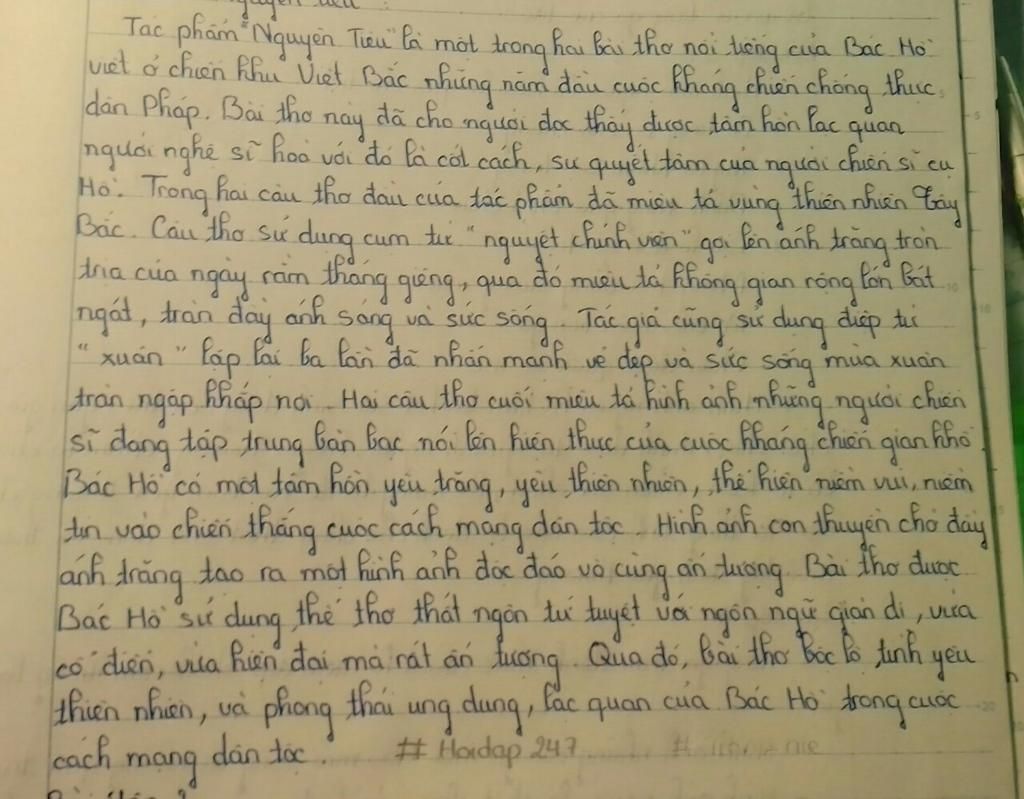 Tác phẩm "Nguyên Tiêu" là một trong hai bài thơ nổi tiếng của Bác Hồ
viết ở chiến khu Việt Bắc những năm đầu cuộc kháng chiến chống thực
dân Pháp. Bài thơ này đã cho người đọc thấy được tâm hồn lạc quan
người nghệ sĩ hoà với đó là cốt cách, sự quyết tâm của người chiến sĩ cụ
Hồ. Trong hai câu thơ đầu của tác phẩm đã miêu tả vùng thiên nhiên Tây
Bắc. Câu thơ sử dụng cụm từ "nguyệt chính viên" gợi lên ánh trăng tròn
trịa của ngày rằm tháng giêng, qua đó miêu tả không gian rộng lớn bát
ngát, tràn đầy ánh sáng và sức sống. Tác giả cũng sử dụng điệp từ
"xuân" lặp lại ba lần đã nhấn mạnh vẻ đẹp và sức sống mùa xuân
tràn ngập khắp nơi. Hai câu thơ cuối miêu tả hình ảnh những người chiến
sĩ đang tập trung bàn bạc nói lên hiện thực của cuộc kháng chiến gian khổ.
Bác Hồ có một tâm hồn yêu trăng, yêu thiên nhiên, thể hiện niềm vui, niềm
tin vào chiến thắng cuộc cách mạng dân tộc. Hình ảnh con thuyền chở đầy
ánh trăng tạo ra một hình ảnh độc đáo vô cùng ấn tượng. Bài thơ được
Bác Hồ sử dụng thể thơ thất ngôn tứ tuyệt với ngôn ngữ giản dị, vừa
cổ điển, vừa hiện đại mà rất ấn tượng. Qua đó, bài thơ bộc lộ tình yêu
thiên nhiên, và phong thái ung dung, lạc quan của Bác Hồ trong cuộc
cách mạng dân tộc. # Hoidap 247